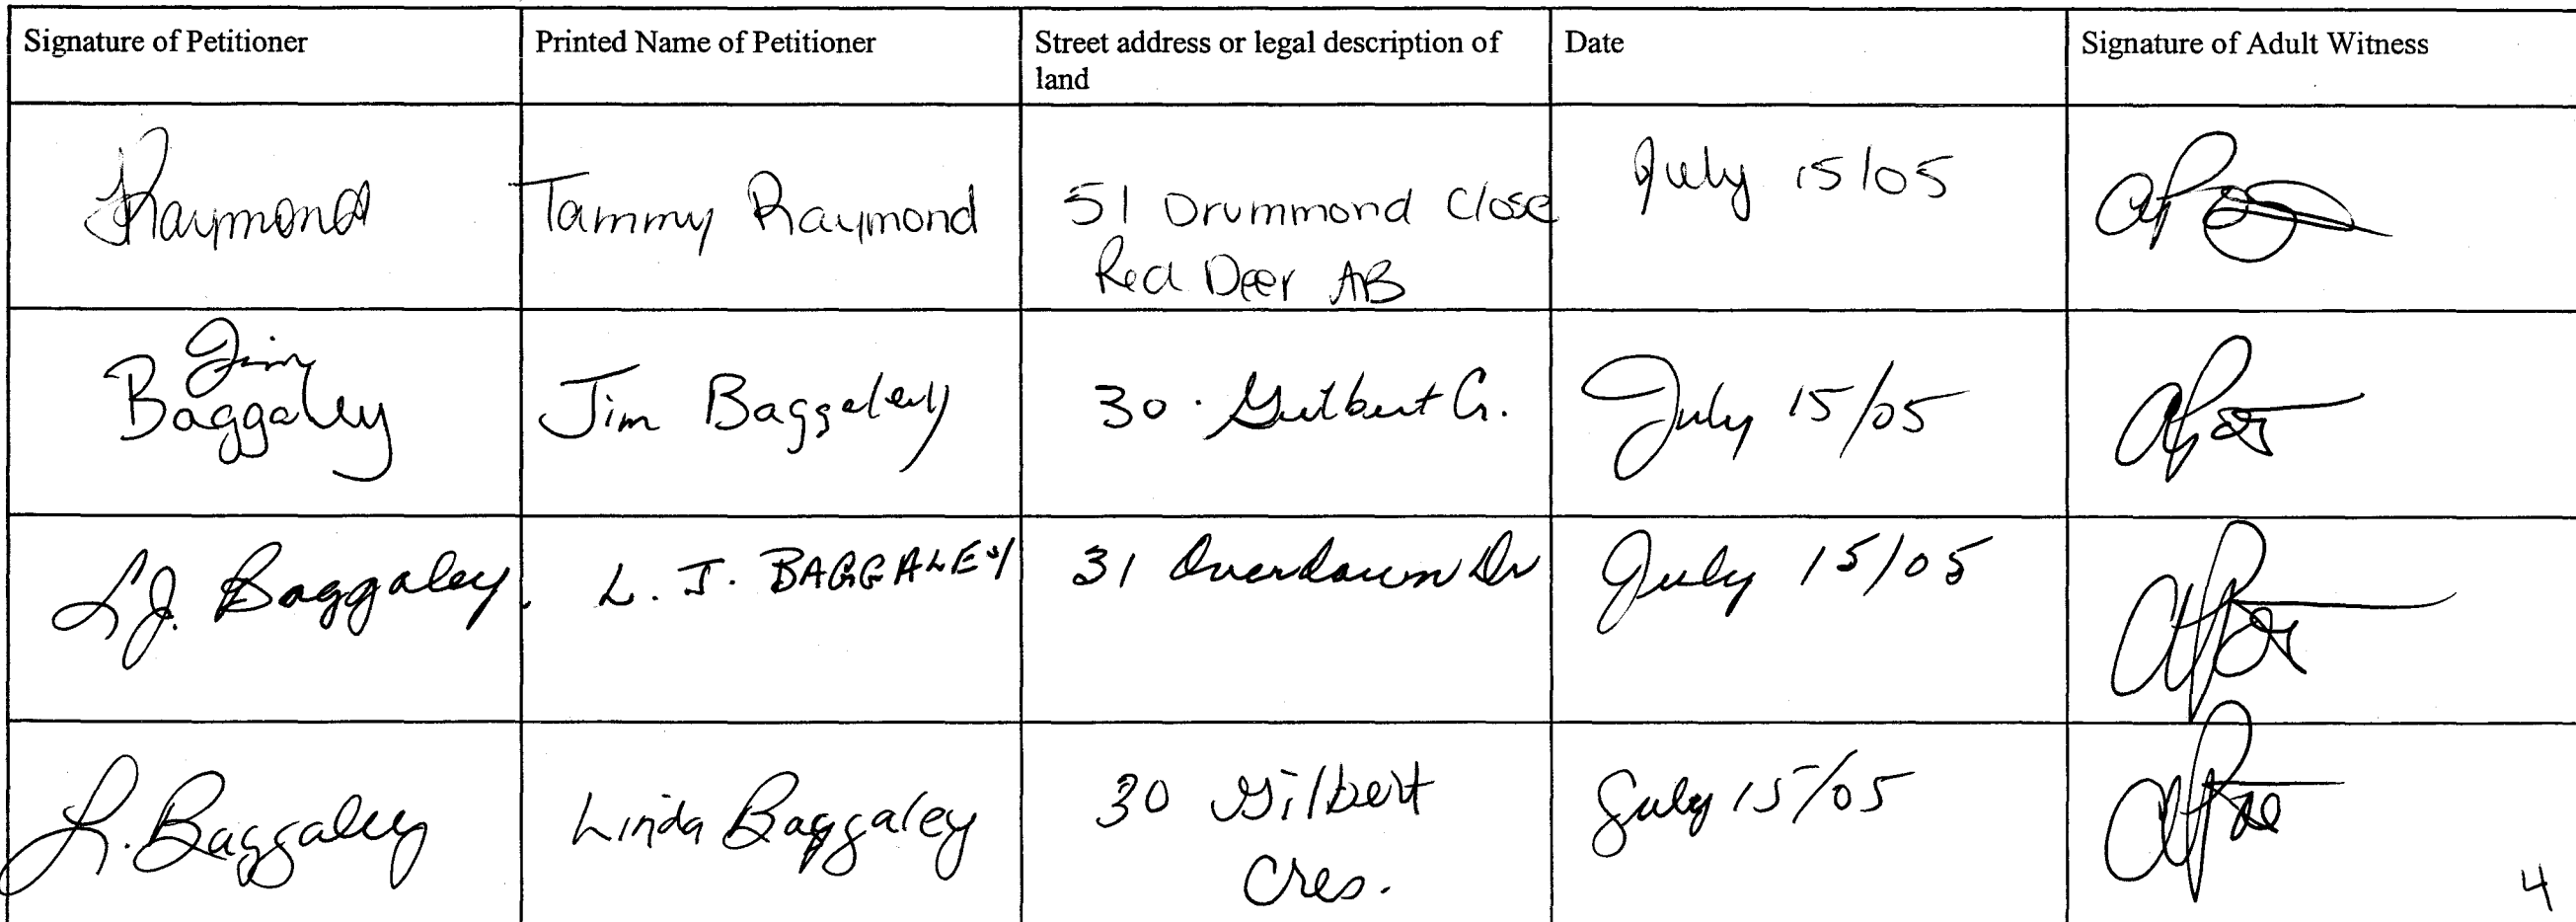 Signature of Petitioner Printed Name of Petitioner Street address or legal description of land Date Signature of Adult Witness
Raymond Tammy Raymond 51 Drummond Close July 15/05
Red Deer AB
Jim
Baggaley Jim Baggaley 30 Gilbert Cr. July 15/05
L.J. Baggaley. L. J. BAGGALEY 31 Overdown Dr July 15/05
L. Baggaley Linda Baggaley 30 Gilbert July 15/05
Cres.
4